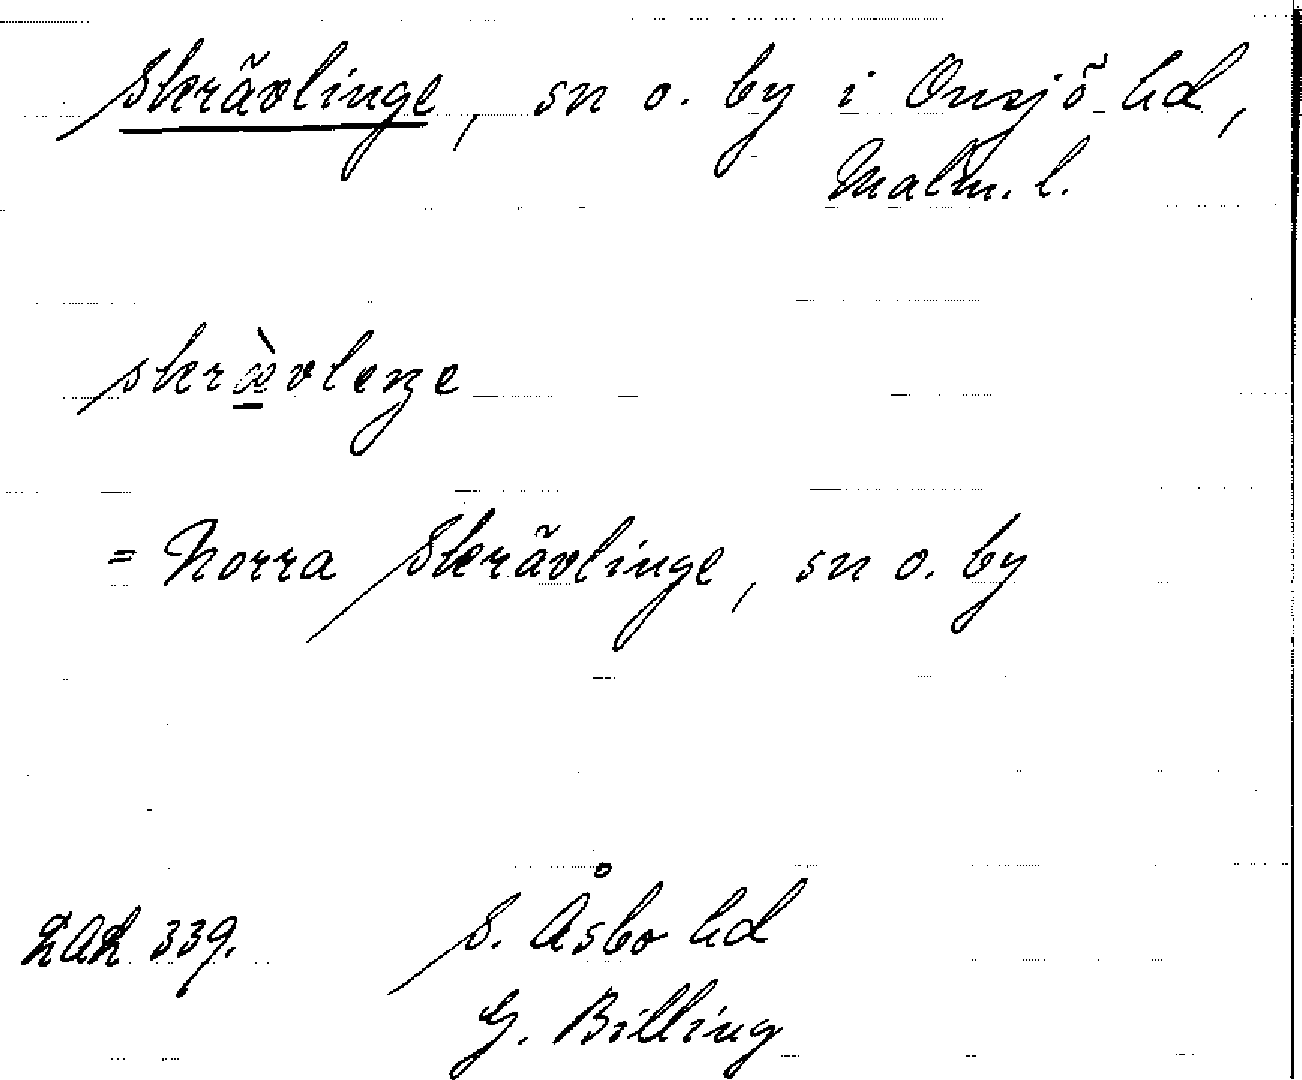 Skrävlinge, sn o. by i Onsjö hd,
Malm. l.
skræ̀vleŋe
= Norra Skrävlinge, sn o. by
LAL 339.
S. Åsbo hd
G. Billing